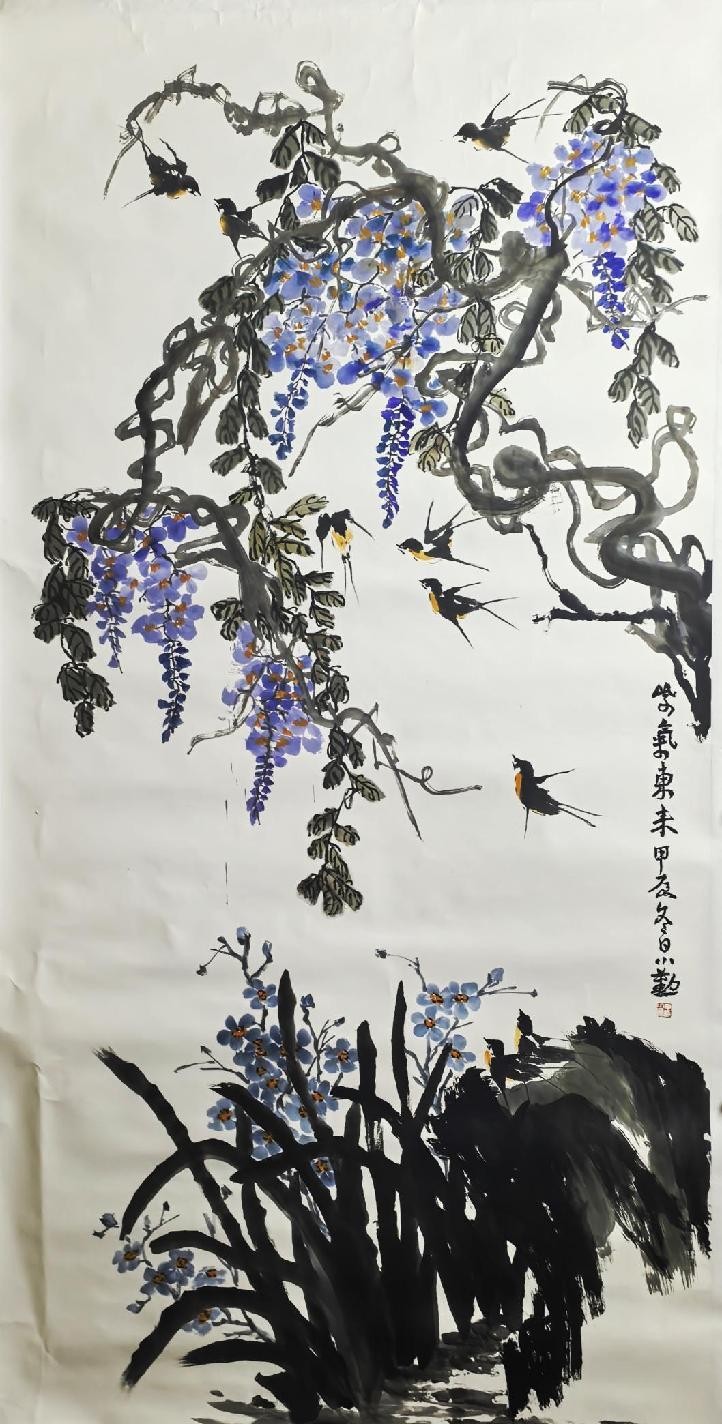 紫氣東来甲辰冬日小勤